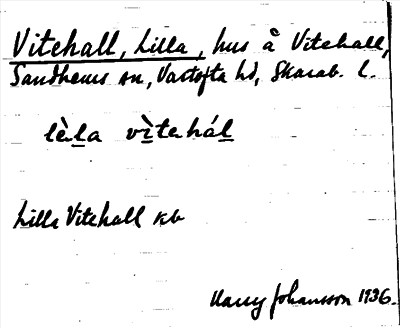 Vitehall, Lilla, hus å Vitehall,
Sandhems sn, Vartofta hd, Skarab. l.
lèla vìtehál
Lilla Vitehall kb
Harry Johansson 1936.